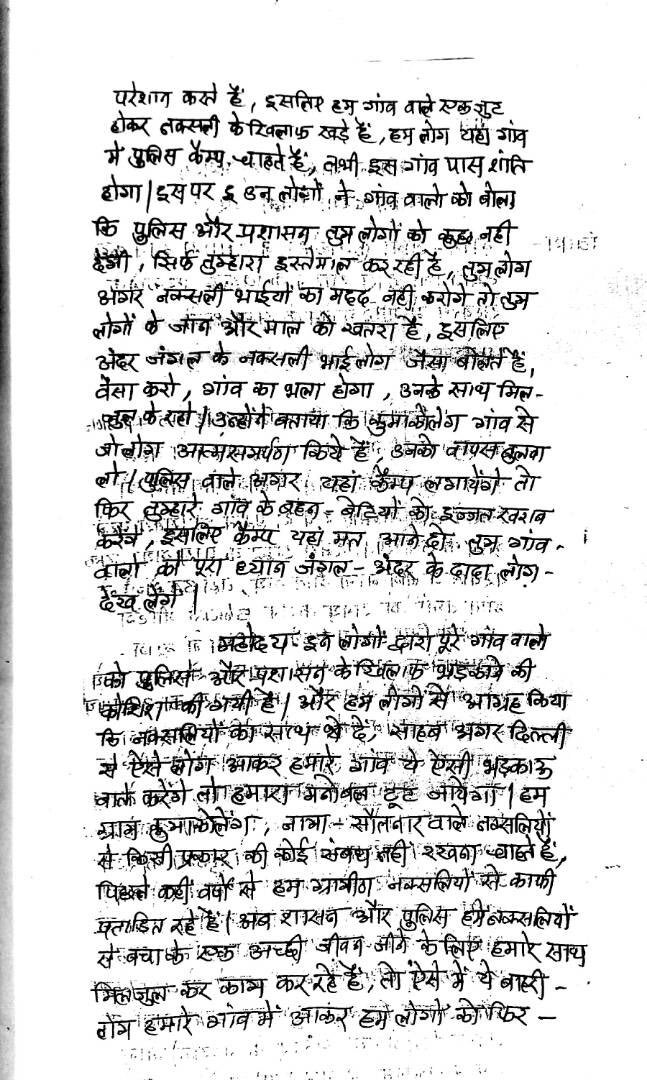 परेशान करते हैं, इसलिए हम गांव वाले एक जुट
होकर नक्सली के खिलाफ खड़े हैं, हम लोग यहां गांव
में पुलिस कैम्प चाहते हैं, तभी इस गांव पास शांति
होगा। इस पर इ उन लोगों ने गांव वालो को बोला
कि पुलिस और प्रशासन तुम लोगों को कुछ नही
देगी, सिर्फ तुम्हारा इस्तेमाल कर रही है, तुम लोग
अगर नक्सली भाईयों का मदद नही करोगे तो तुम
लोगों के जान और माल को खतरा है, इसलिए
अंदर जंगल के नक्सली भाई लोग जैसा बोलते हैं,
वैसा करो, गांव का भला होगा, उनके साथ मिल-
जुल के रहो। उन्होंने बताया कि कुमाकोलेंग गांव से
जो लोग आत्मसमर्पण किये हैं, उनको वापस बुलवा
लो। पुलिस वाले अगर यहां कैम्प लगायेंगे तो
फिर तुम्हारे गांव के बहन-बेटियों की इज्जत खराब
करेंगे, इसलिए कैम्प यहां मत आने दो तुम गांव-
वालो को पूरा ध्यान जंगल-अंदर के दादा लोग-
देख लेंगे।
महोदय इन लोगों द्वारा पूरे गांव वालो
को पुलिस और प्रशासन के खिलाफ भड़काने की
कोशिश की गयी है। और हम लोगो से आग्रह किया
कि नक्सलियों का साथ दे, साहब अगर दिल्ली
से ऐसे लोग आकर हमारे गांव ये ऐसी भड़काऊ
बाते करेंगे तो हमारा मनोबल टूट जायेगा। हम
ग्राम कुमाकोलेंग, नामा-सौतनार वाले नक्सलियों
से किसी प्रकार की कोई संबंध नही रखना चाहते हैं,
पिछले कई वर्षों से हम ग्रामीण नक्सलियों से काफी
प्रताडित रहे हैं। अब शासन और पुलिस हमें नक्सलियों
से बचा के एक अच्छी जीवन जीने के लिए हमारे साथ
मिलजुल कर काम कर रहे हैं, तो ऐसे में ये बाहरी-
लोग हमारे गांव में आकर हम लोगो को फिर-